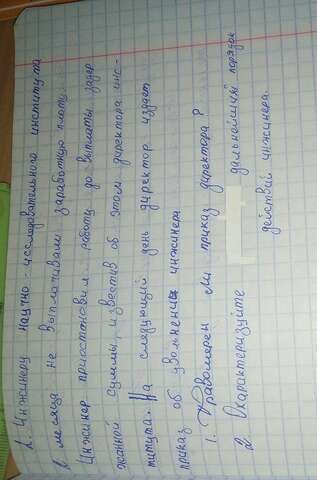 2. Инжинеру научно-исследовательного института
2 месяца не выплачивали заработную плату.
Инжинер приостановил работу до выплаты задер
жанной суммы, известив об этом директора инс-
титута. На следующий день директор издает
приказ об увольнение инжинера
1. Правомерен ли приказ директора?
2. Охарактеризуйте дальнейший порядок
действий инжинера.